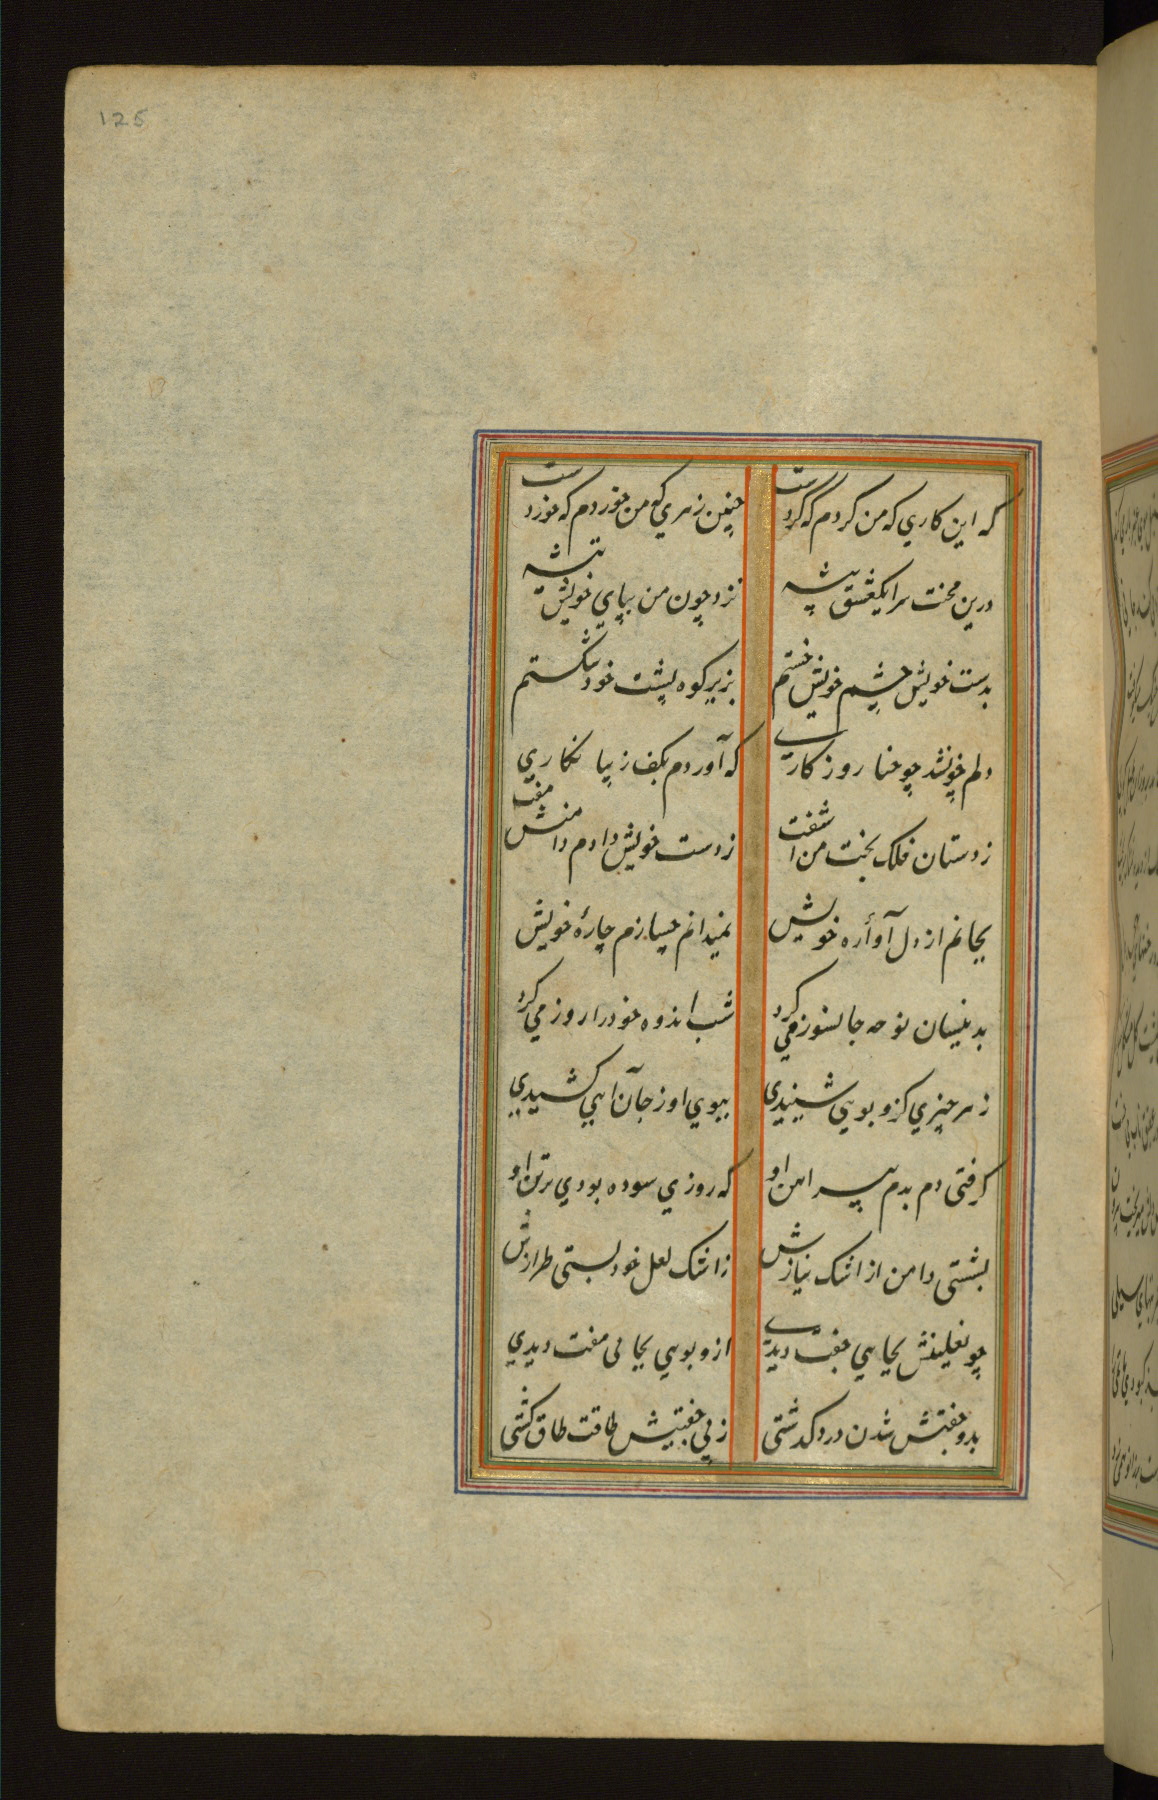 125
که این کاری که من کردم که کردست چنین زهری که من خوردم که خوردست
درین محنت سرا یکعشق پیشه نزد چون من بپای خویش تیشه
بدست خویش چشم خویش خستم بزیر کوه پشت خود شکستم
دلم خونشد چو حنا روزکاری که آوردم بکف زیبا نکاری
زدستان فلک بخت من اشفت زدست خویش دادم دامنش مفت
بجانم از دل آواره خویش نمیدانم چسازم چارهٔ خویش
بدینسان نوحه جانسوز می کرد شب اندوه خود را روز می کرد
زهر چیزی کزو بویی شنیدی ببوی او زجان آهی کشیدی
کرفتی دم بدم پیراهن او که روزی سوده بودی بر تن او
بشستی دامن از اشک نیازش زاشک لعل خود بستی طرازش
چو نعلینش بجایی جفت دیدی ازو بویی بجانی مفت دیدی
بدو جفتش شدن در دل کذشتی زبی جفتیش طاقت طاق کشتی